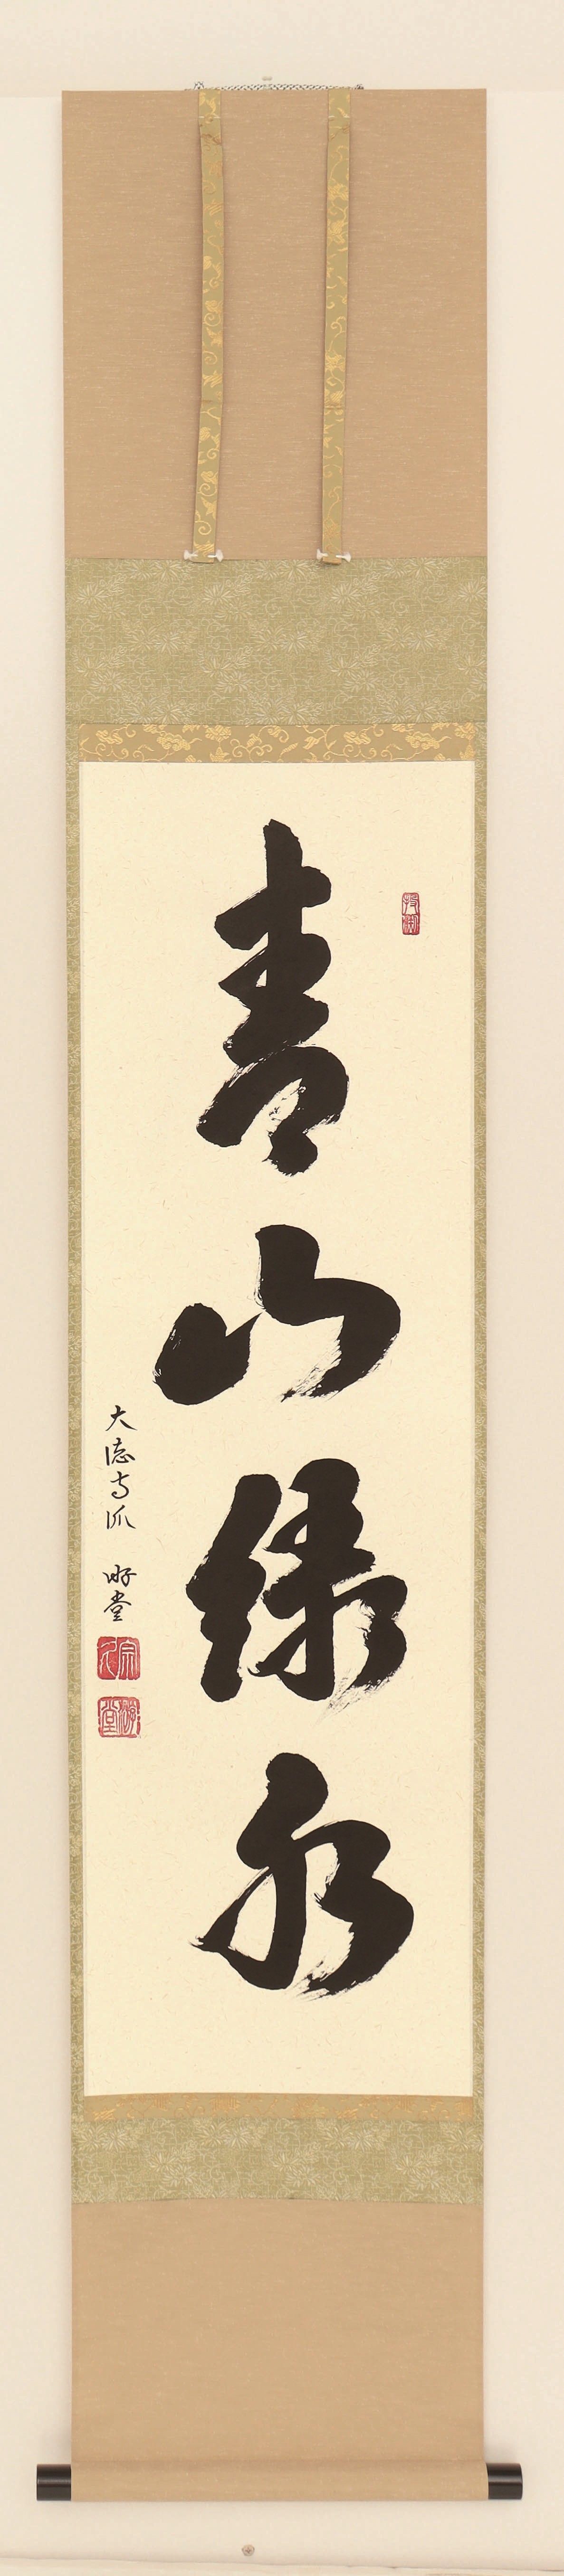 青山緑水
大徳寺派 明堂